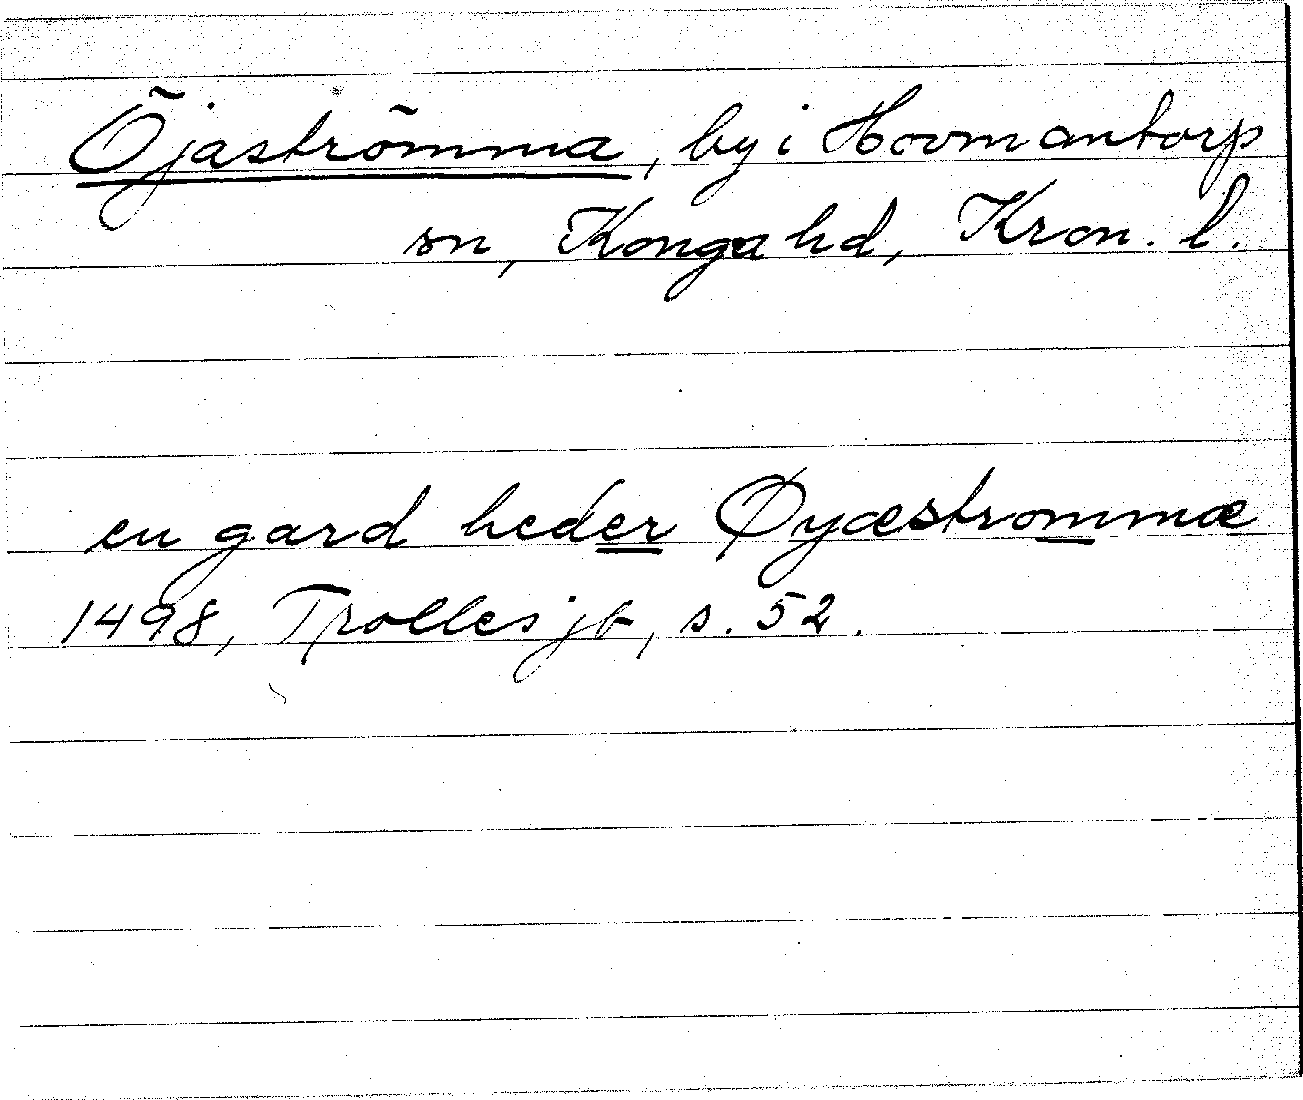 Öjaströmma, by i Hovmantorp
sn, Konga hd, Kron. l.
en gard heder Øyæstrommæ
1498, Trolles jb, s. 52.